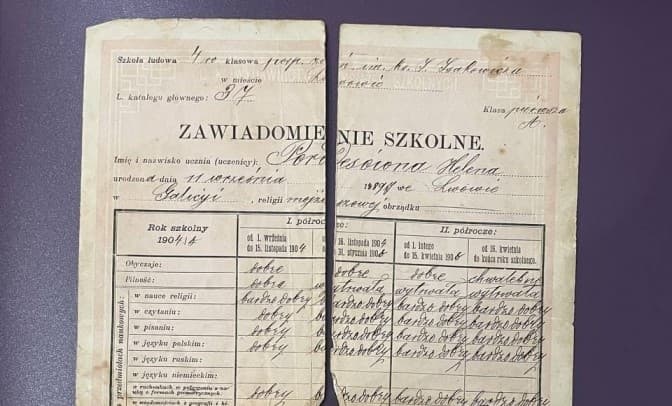 Szkoła ludowa 4 ro klasowa posp. im. ks. J.
w mieście Lwowie
L. katalogu głównego: 37
Klasa pierwsza
A.
ZAWIADOMIENIE SZKOLNE.
Imię i nazwisko ucznia (uczenicy): Helena
urodzona dnia 11 września we Lwowie
w Galicyi, religii mojżeszowej obrządku
Rok szkolny 1904/5
I. półrocze:
II. półrocze:
od 1. września do 15. listopada 1904
16. listopada 1904 31. stycznia 1905
od 1. lutego do 15. kwietnia 1905
od 16. kwietnia do końca roku szkolnego.
Obyczaje: dobre dobre dobre chwalebne
Pilność: dobra wytrwała wytrwała wytrwała
w przedmiotach naukowych:
w nauce religii: bardzo dobry bardzo dobry bardzo dobry bardzo dobry
w czytaniu: dobry bardzo dobry bardzo dobry bardzo dobry
w pisaniu: dobry bardzo dobry bardzo dobry bardzo dobry
w języku polskim: dobry bardzo dobry bardzo dobry bardzo dobry
w języku ruskim:
w języku niemieckim:
w rachunkach w połączeniu z nauką o formach geometrycznych: dobry bardzo dobry bardzo dobry bardzo dobry
w wiadomościach z geografii i